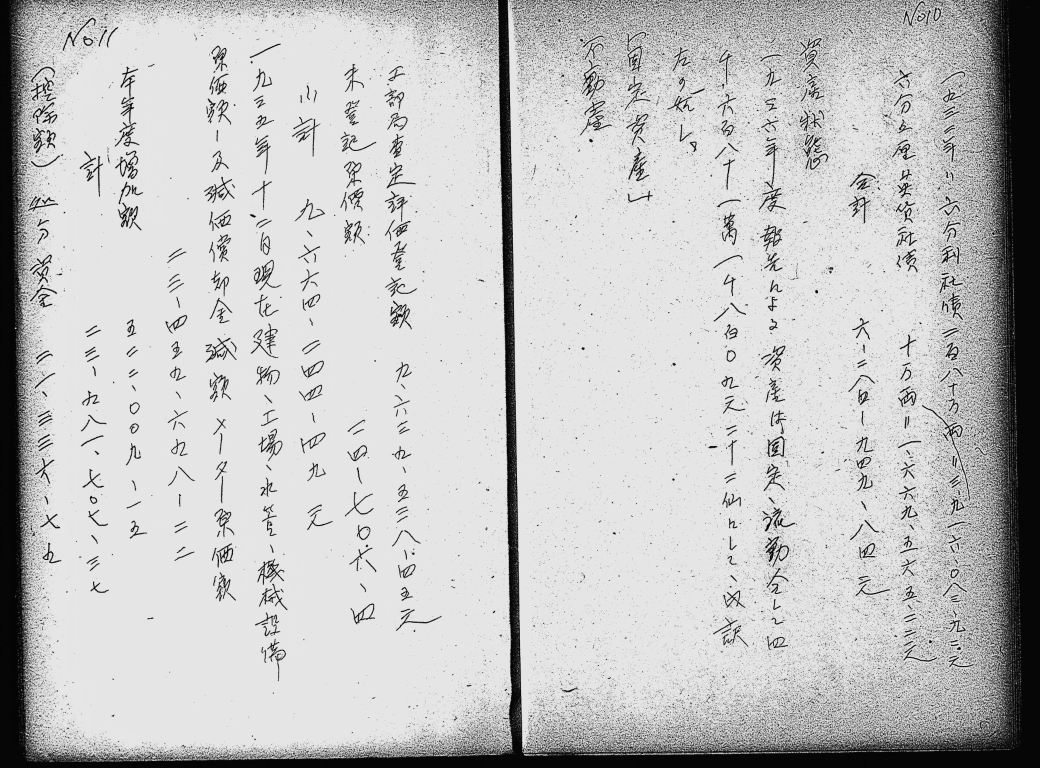 No10
一九三二年〃六分利社債二百八十万両〃三九一六〇八三、九二元
六分五厘英貨社債 十万両〃一、六六九、五六五、二三元
合計 六、二八白、九四九、八四元
資産状態
一九三六年度報告による資産は固定、流動合して四
千六百八十一萬一千八百〇九元二十二仙にして、内訳
左の如し。
「固定資産」
不動産
No11
工部局査定評価登記額 九、六三九、五三八、四五元
未登記原價額 二四、七〇六、四
小計 九、六六四、二四四、四九元
一九三五年十二月現在建物、工場、水管、機械設備
原価額、及減価償却金減額メーター原価額
二三、四五九、六九八、二二
本年度増加額 五二二、〇〇九、一五
計 二三、九八一、七〇七、三七
(控除額) 処分資金 二一、三三六、七五